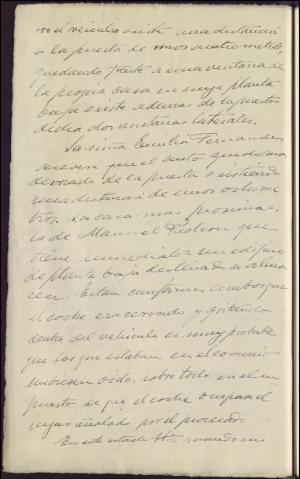 rro el vehiculo existe una distancia
a la puerta de unos cuatro metros,
quedando frente a una ventana de
la propia casa en cuya planta
baja existe ademas de la puerta
dicha dos ventanas laterales.
La niña Emilia Fernandez
asevera que el auto quedó mas
desviado de la puerta existiendo
una distancia de unos ocho me
tros. La casa mas proxima es
la de Manuel que
tiene inmediato un edificio
de planta baja destinado a alma
cen. Estan conformes ambos que
el coche era cerrado y gritando
dentro del vehiculo es muy probable
que los que estaban en el comercio
hubiesen oido, sobre todo en el su
puesto de que el coche ocupara el
lugar señalado por el procesado
En este estado S.Sª mando